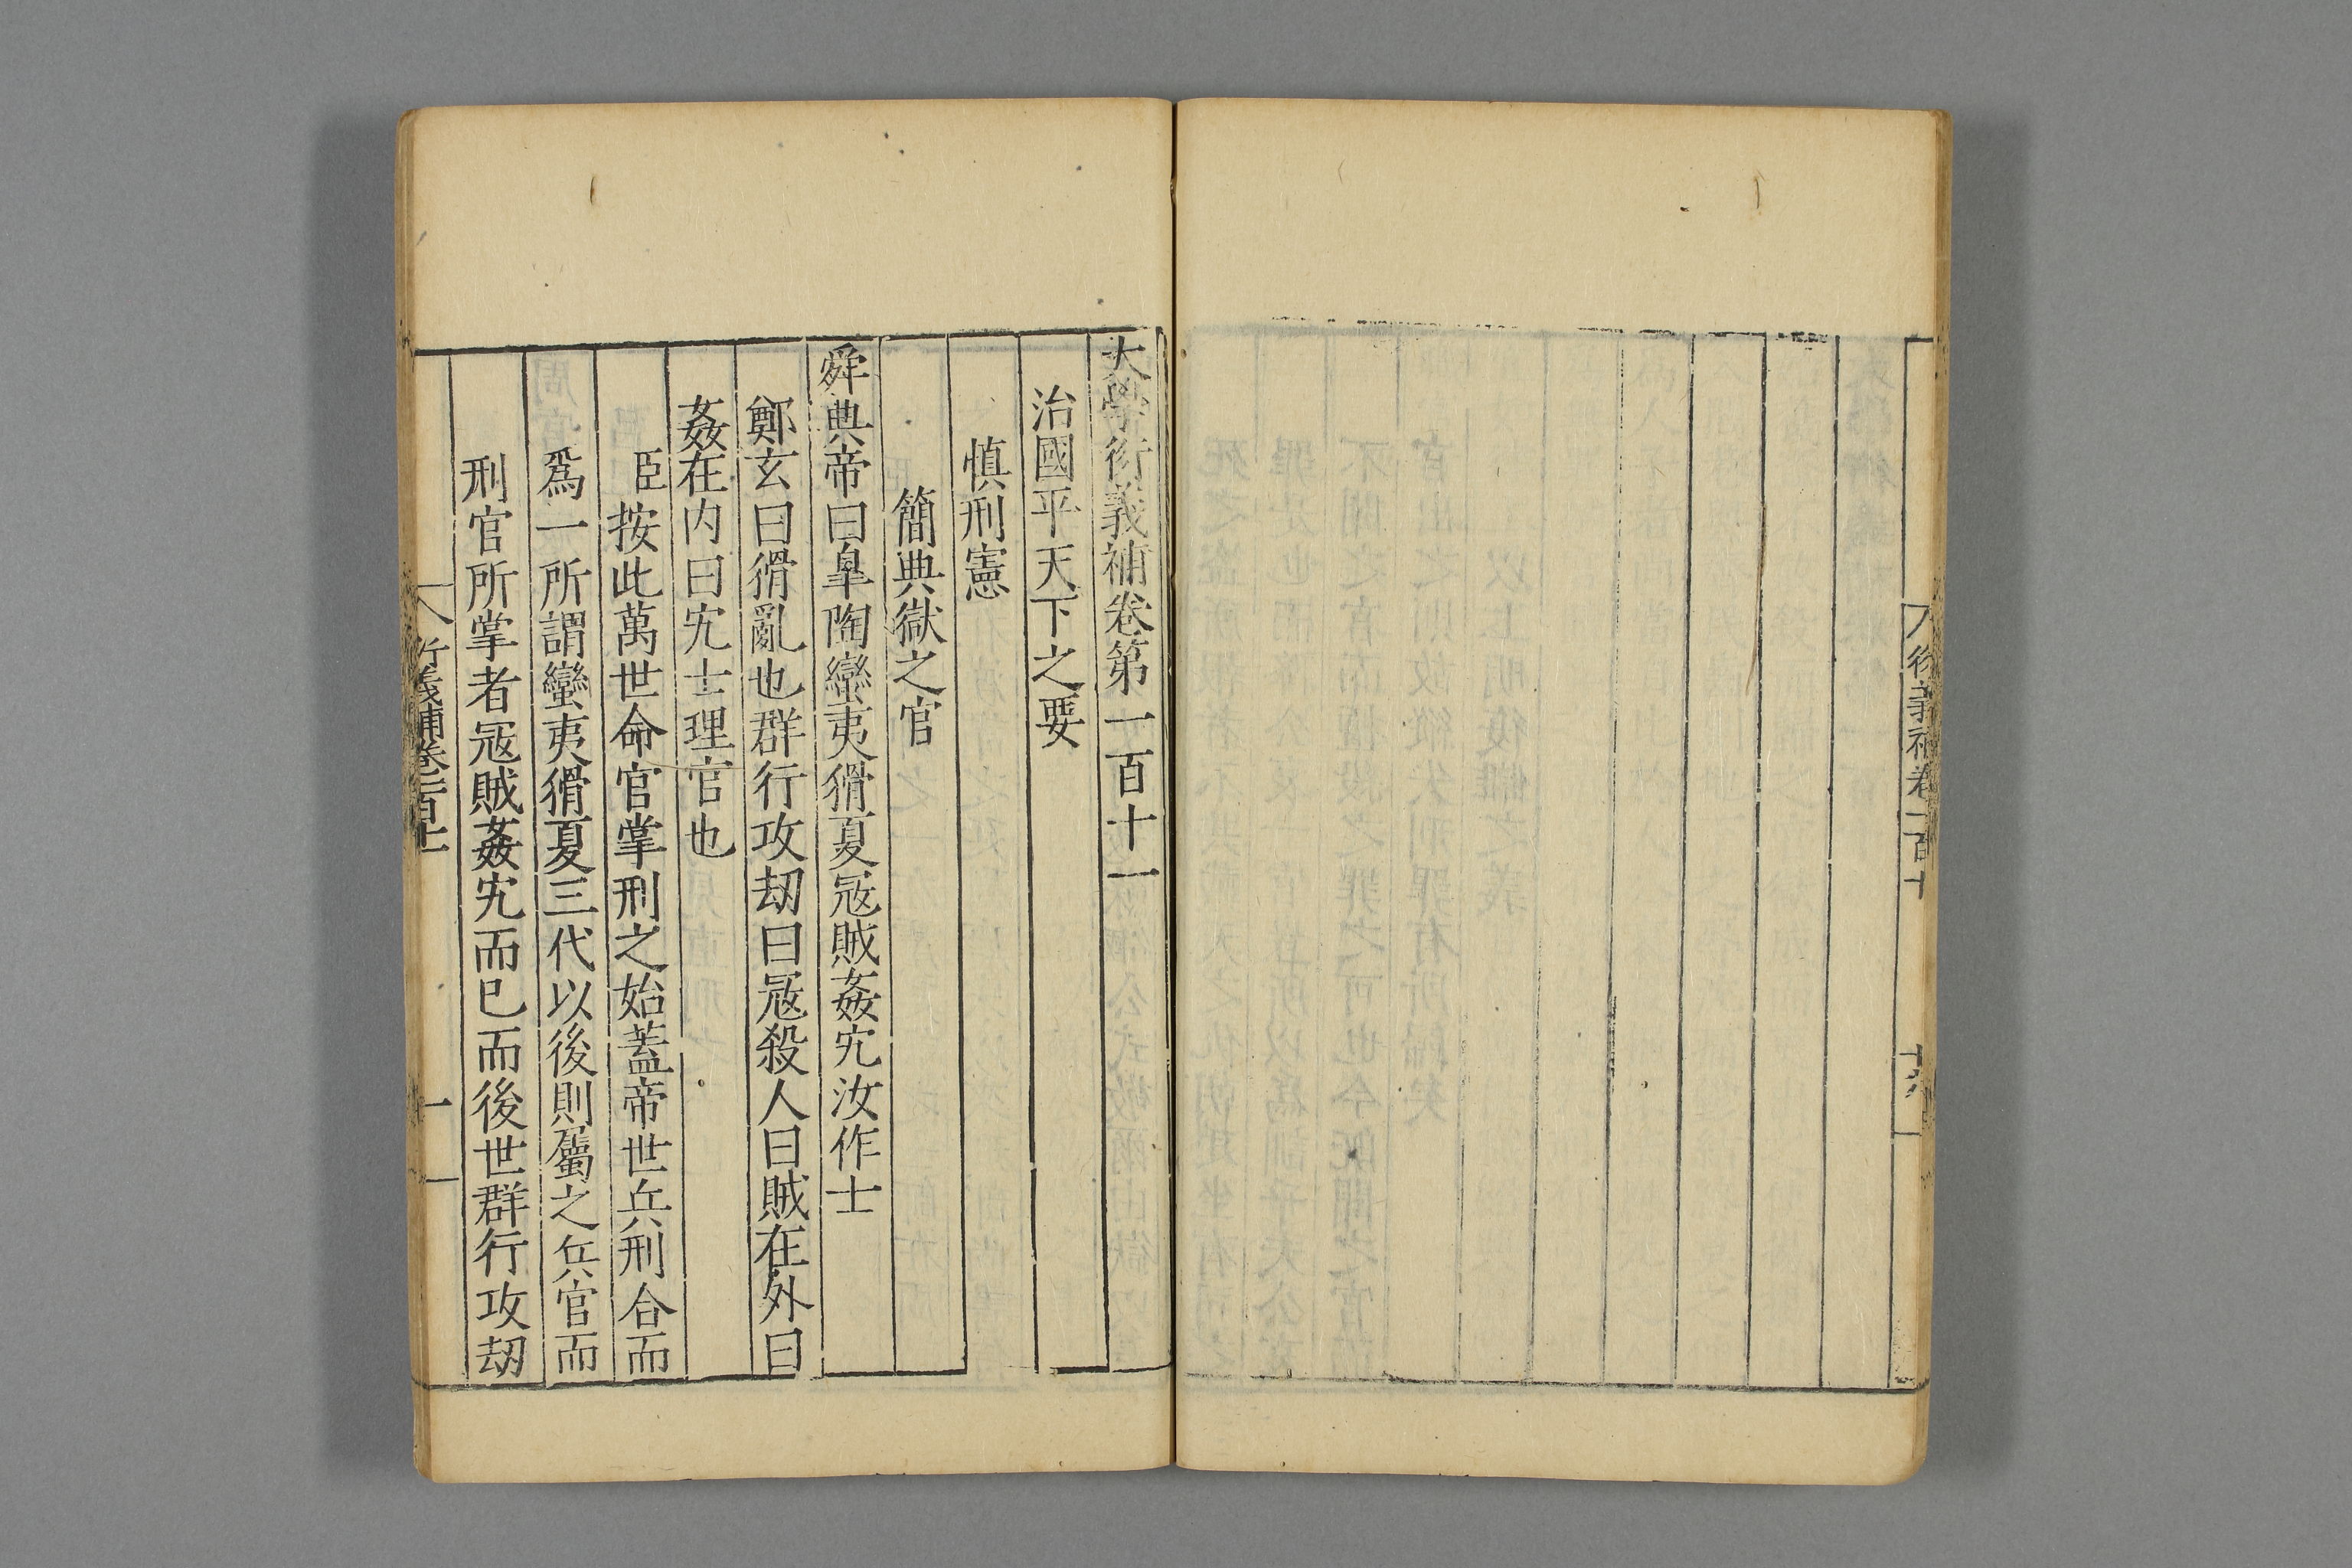 衍義補卷一百十
十六
大學衍義補卷第一百十一
治國平天下之要
慎刑憲
簡典獄之官
舜典帝曰臯陶蠻夷猾夏寇賊姦宄汝作士
鄭玄曰猾亂也群行攻刼曰寇殺人曰賊在外曰
姦在内曰宄士理官也
臣按此萬世命官掌刑之始蓋帝世兵刑合而
爲一所謂蠻夷猾夏三代以後則屬之兵官而
刑官所掌者寇賊姦宄而已而後世群行攻刼
衍義補卷一百十一
一